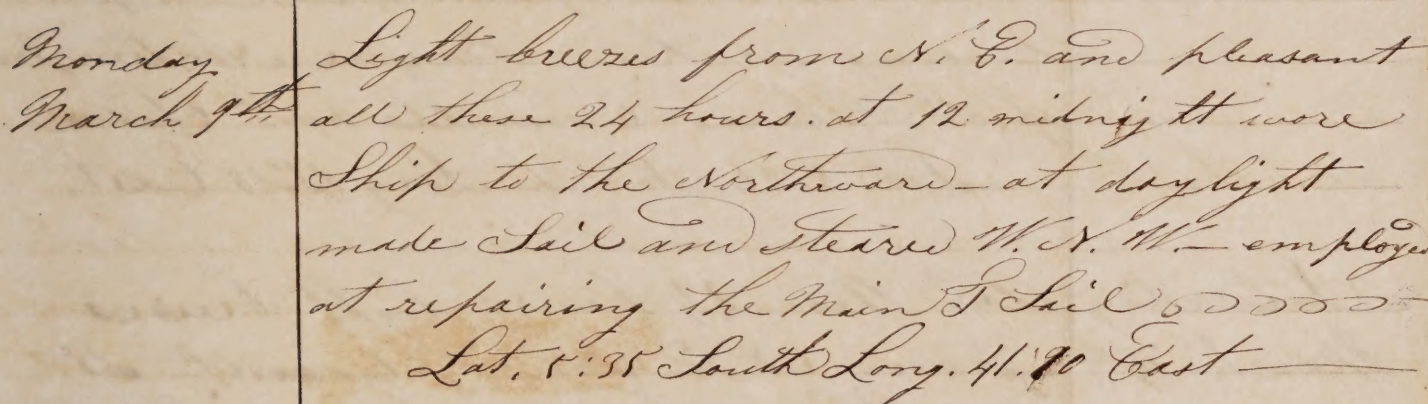 Monday
March 9th
Light breezes from N. E. and pleasant
all these 24 hours. at 12 midnight wore
Ship to the Northward - at daylight
made Sail and steared W. N. W. - employed
at repairing the Main T Sail
Lat. 5:35 South Long. East